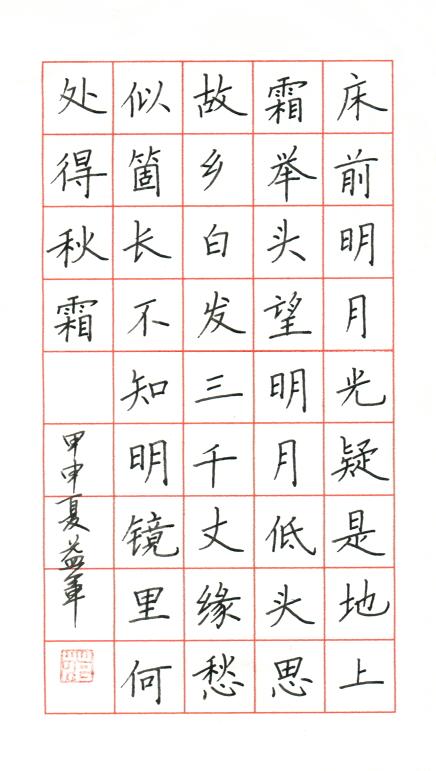 床前明月光疑是地上
霜举头望明月低头思
故乡白发三千丈缘愁
似箇长不知明镜里何
处得秋霜
甲申夏益军